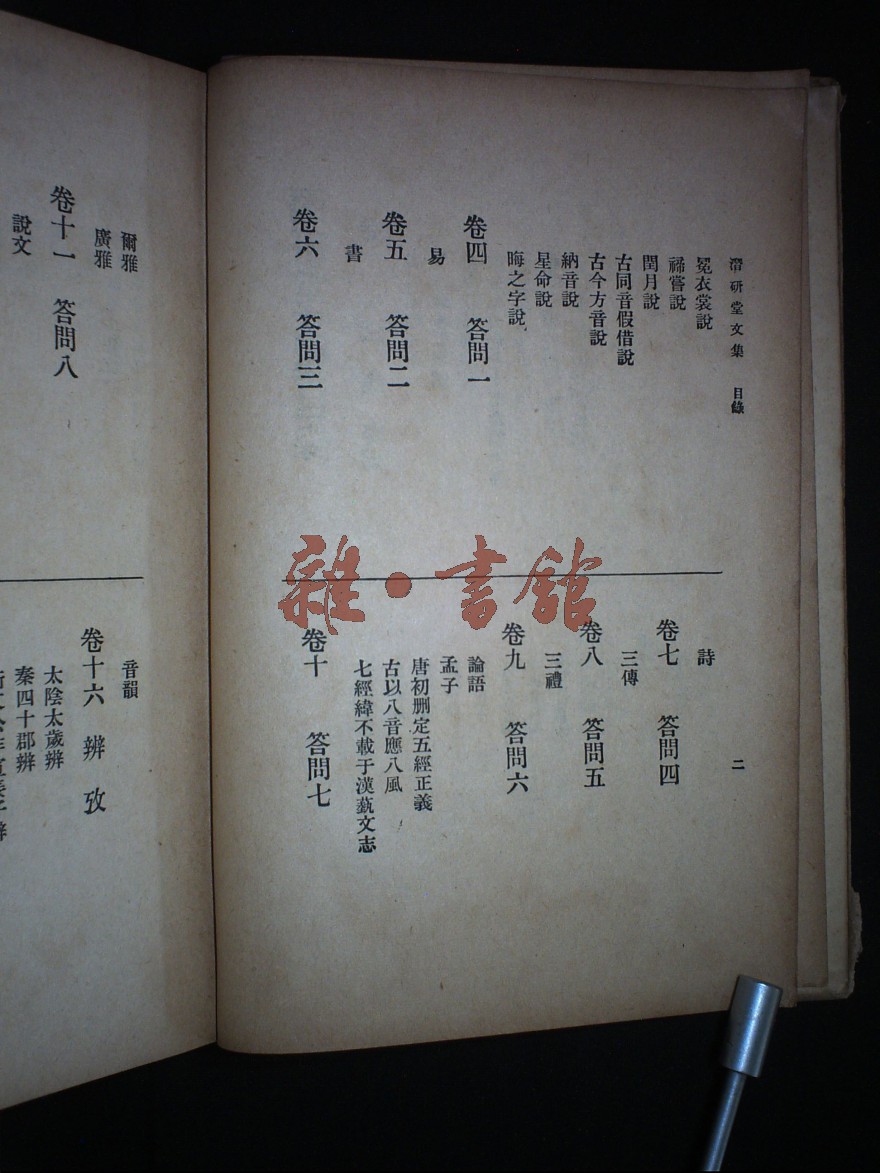 潛研堂文集 目錄
冕衣裳說
禘嘗說
閏月說
古同音假借說
古今方音說
納音說
星命說
晦之字說
卷四 答問一
易
卷五 答問二
書
卷六 答問三
詩
卷七 答問四
三傳
卷八 答問五
三禮
卷九 答問六
論語
孟子
唐初删定五經正義
古以八音應八風
七經緯不載于漢蓺文志
卷十 答問七
二
爾雅
廣雅
卷十一 答問八
說文
音韻
卷十六 辨攷
太陰太歲辨
秦四十郡辨
雜·書館